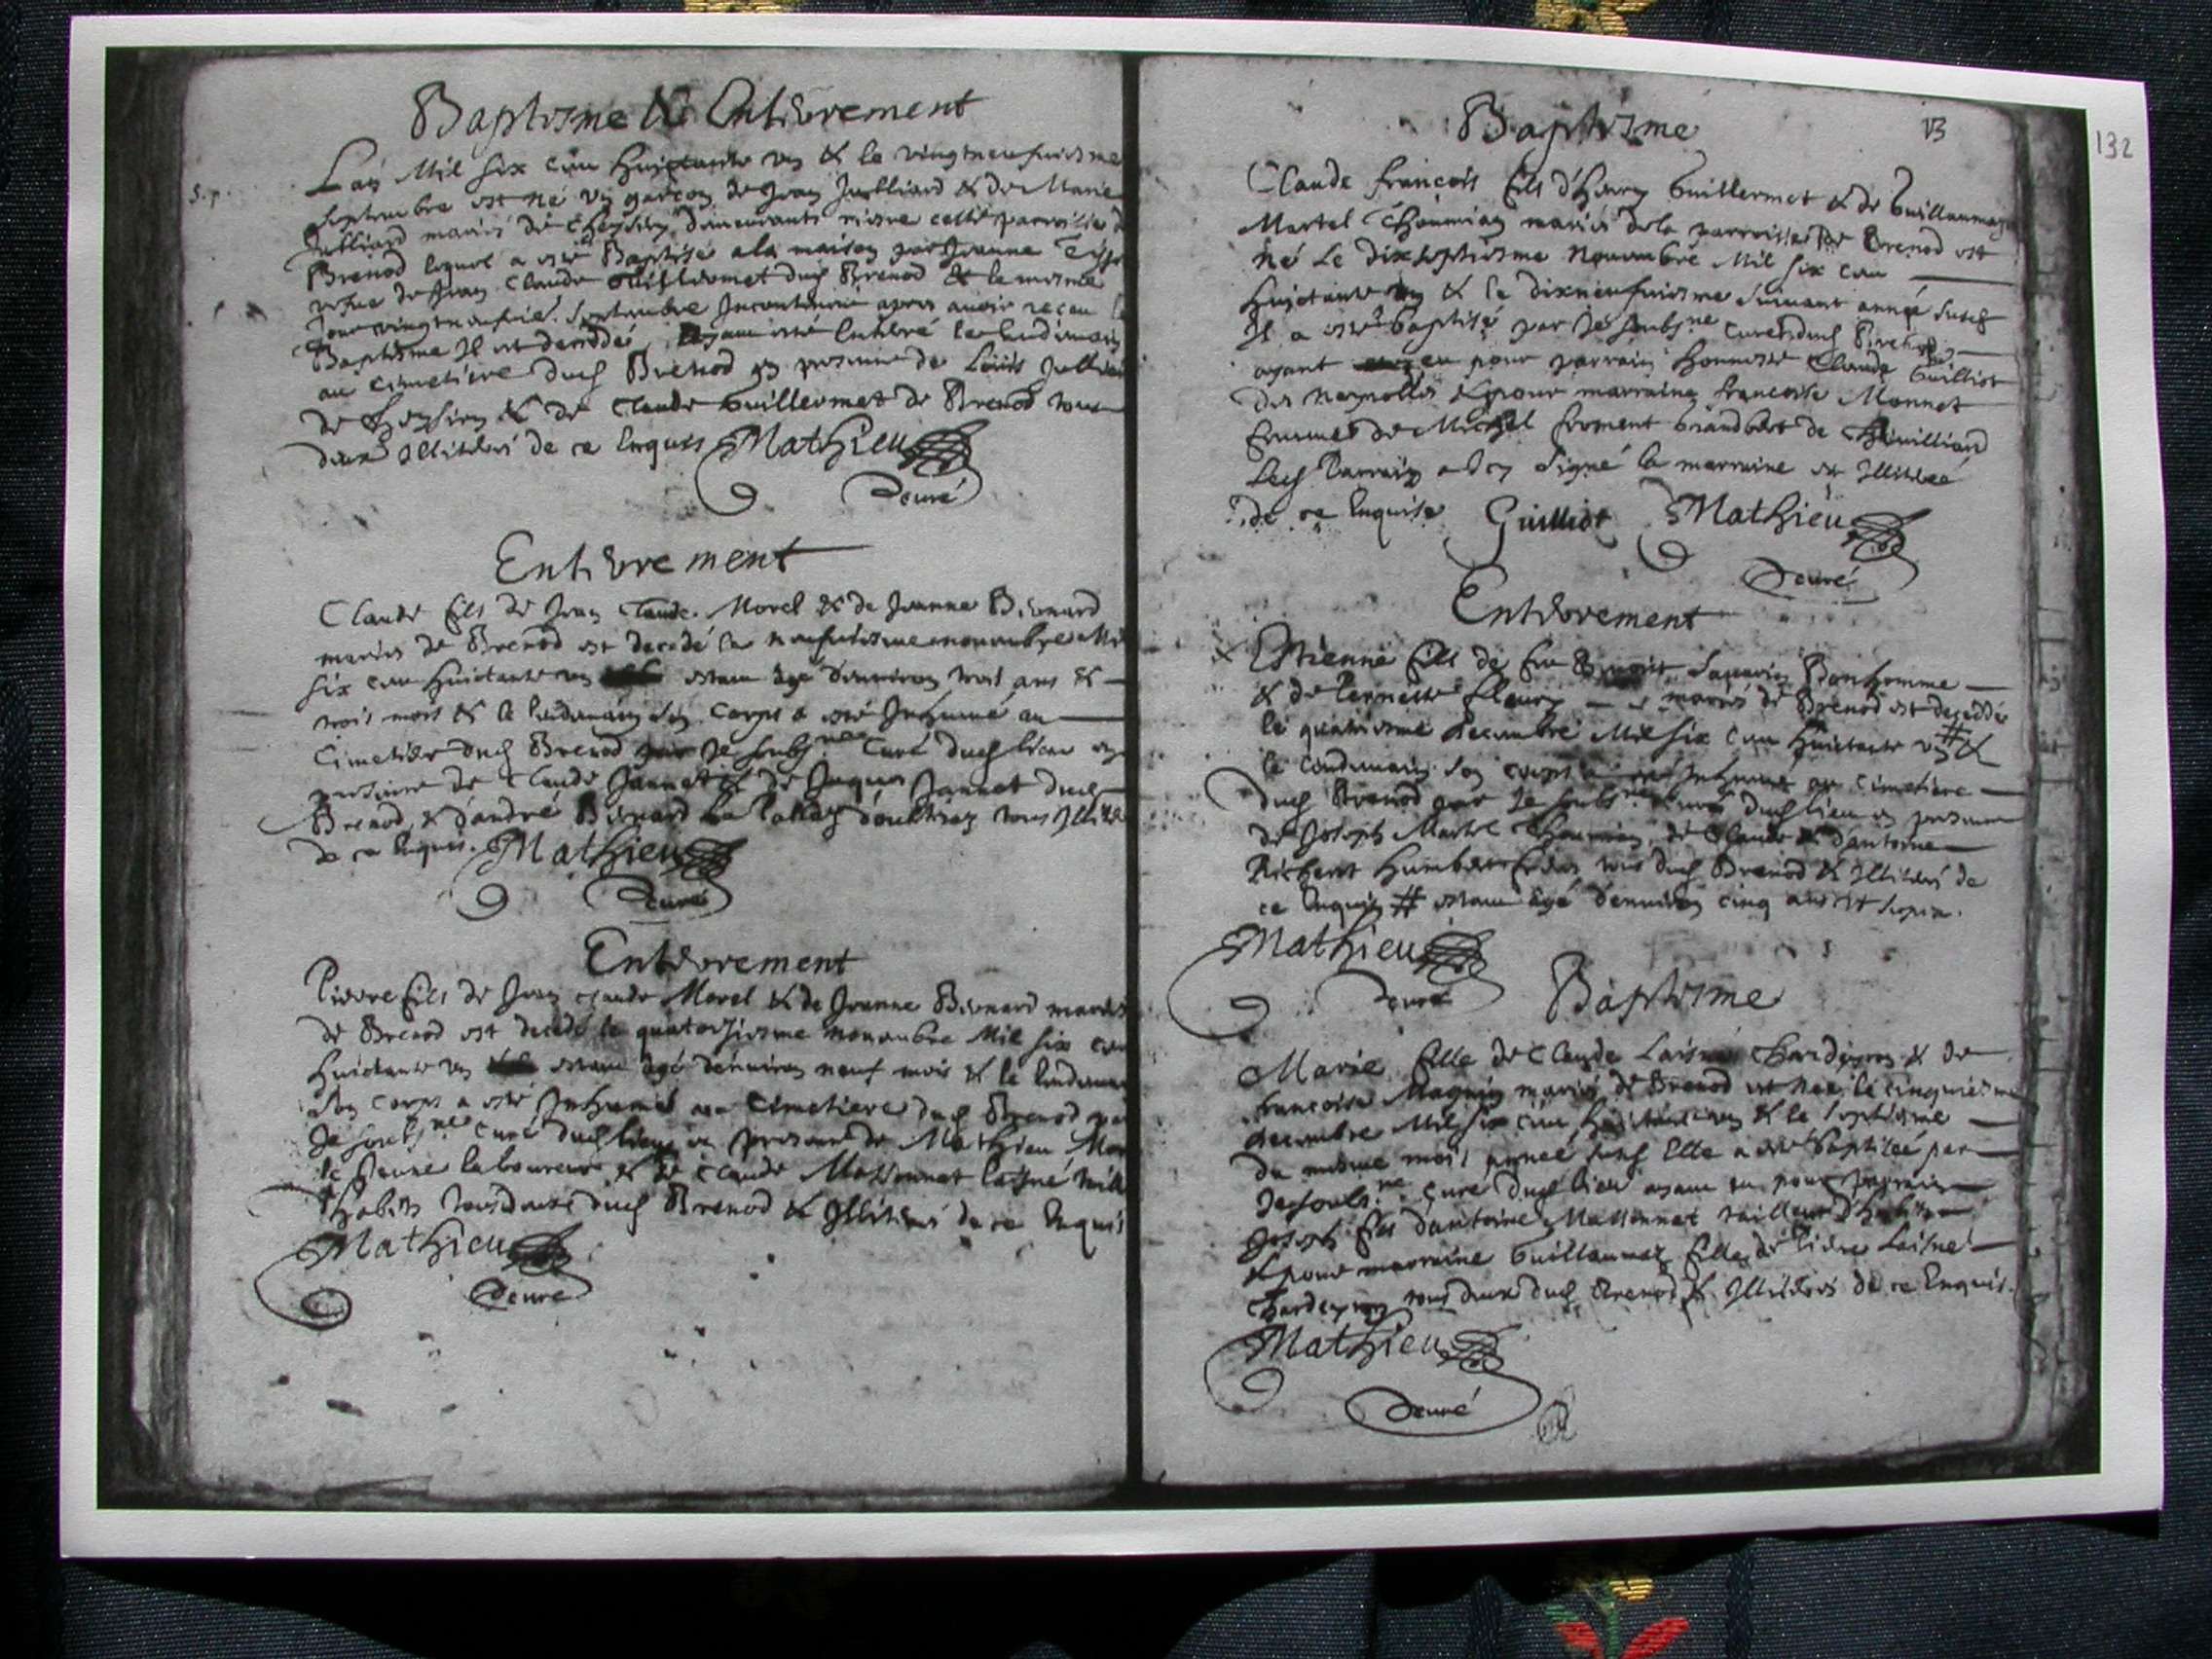 Baptisme & Enterrement
Lan Mil six cens huictante un & le vingtneufuiesme
septembre est né un garçon de Jean Julliard & de Marie
Julliard mariés de demeurants riesre cette parroisse de
Brenod lequel a esté Baptisé a la maison par Jeanne
vefue de Jean Claude Guillermet dud Brenod & le mesme
Jour vingtneufuie. Septembre Incontinent apres auoir receu le
Baptesme Il est decedde, ayant esté Enterré le lendemain
au cimetiere dud Brenod en presence de Louis Julliard
de & de Claude Guillermet de Brenod tous
deux Illiterés de ce Enquis Mathieu
Curé
Enterrement
Claude fils de Jean Claude Morel & de Jeanne Bernard
mariés de Brenod est decedé le neufuiesme nouembre Mil
six cens huictante un estant agé d'enuiron trois ans &
trois mois & le lendemain son corps a esté Inhumé au
cimetiere dud Brenod par Je soubs.ne Curé dud lieu en
presence de Claude Jannet & de Jaques Jannet dud
Brenod, & d'andré Bernard tous Illite
de ce Enquis. Mathieu
Curé
Enterrement
Pierre fils de Jean claude Morel & de Jeanne Bernard mariés
de Brenod est decedé le quatorsiesme nouembre Mil six cens
huictante un estant agé d'enuiron neuf mois & le lendemain
son corps a esté Inhumé au cimetiere dud Brenod par
Je soubs.ne curé dud lieu en presence de Mathieu Mor
le Jeune laboureur & de Claude Massonnet laisné
d'habits tous deux dud Brenod & Illiterés de ce Enquis
Mathieu
Curé
132
Baptisme
13
Claude francois fils d'henry Guillermet & de Guillaumaz
Martel Thoumian mariés de la parroisse de Brenod est
né Le Dixseptiesme Nouembre Mil six cens
huictante un & le dixneufuiesme suiuant année susd
Il a esté baptisé par Je soubs.ne curé dud Brenod
ayant eu pour parrain honneste Claude Guilliot
des Neyrolles & pour marraine francoise Monnet
femme de Michel forment
Led Parrain a Icy signé la marraine est Illiterée
de ce Enquise Guilliot Mathieu
Curé
Enterrement
x Estienne fils de feu Benoit Sauarin Bonhomme
& de Pernette fleury mariés de Brenod est deceddé
le quatriesme decembre Mil six cens huictante un # &
le lendemain son corps a esté Inhumé au cimetiere
dud Brenod par Je soubs.ne curé dud lieu en presence
de Joseph Martel Thoumian, de Claude & d'antoine
Richerot tous dud Brenod & Illiterés de
ce Enquis # estant agé d'enuiron cinq ans & sept m.
Mathieu
Curé
Baptisme
Marie fille de Claude Laisné Chardeyron & de
francoise Magnin mariés de Brenod est née le cinquiesme
decembre Mil six cens huictante un & le septiesme
du mesme mois année susd Elle a esté baptisée par
Je soubs.ne Curé dud lieu ayant eu pour parrain
Joseph fils d'antoine Massonnet tailleur d'habits
& pour marraine Guillaumaz fille de Pierre Laisné
Chardeyron tous deux dud Brenod & Illiterés de ce Enquis.
Mathieu
Curé